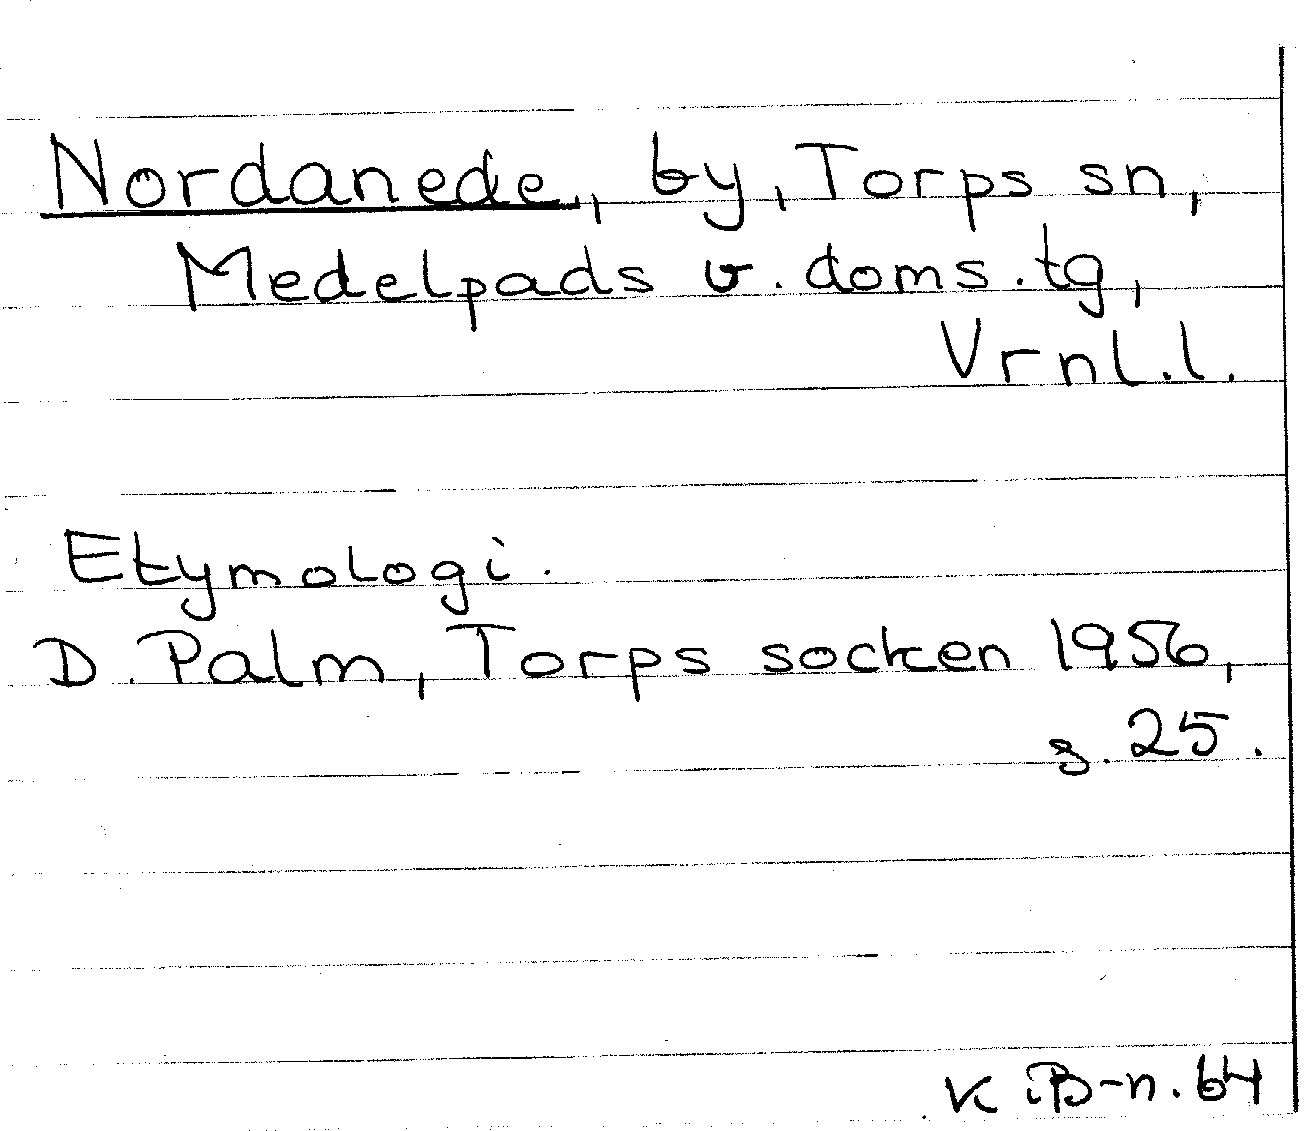 Nordanede, by, Torps sn,
Medelpads v. doms.tg,
Vrnl.l.
Etymologi.
D. Palm, Torps socken 1956,
s. 25.
K B-n. 64